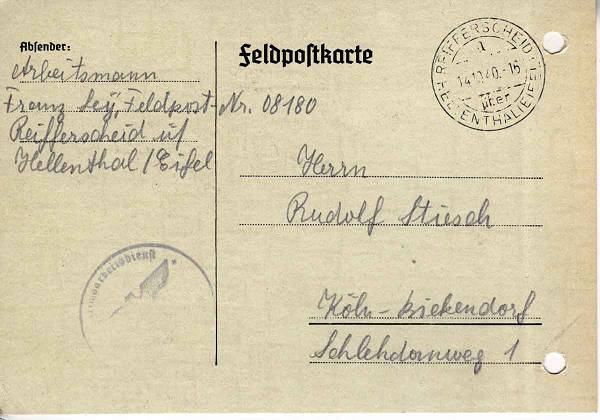 Absender:
Arbeitsmann
Franz Ley, Feldpost-Nr. 08180
Reifferscheid üf
Hellenthal / Eifel
Feldpostkarte
REIFFERSCHEID
14.10.40.-16
über
HELLENTHAL (EIFEL)
Herrn
Rudolf Stiesch
Köln-Bickendorf
Schlehdornweg 1
arbeitsdienst